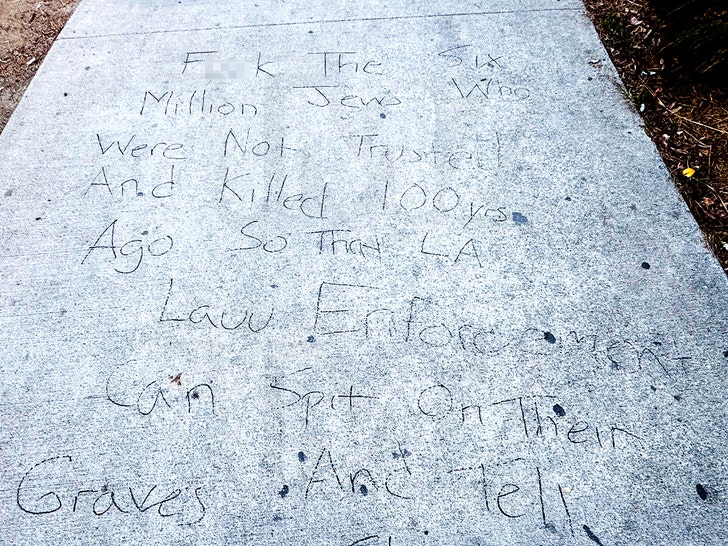 F k The Six
Million Jews Who
Were Not Trusted
And Killed 100yrs
Ago So That LA
Law Enforcement
Can Spit On Their
Graves And Tell